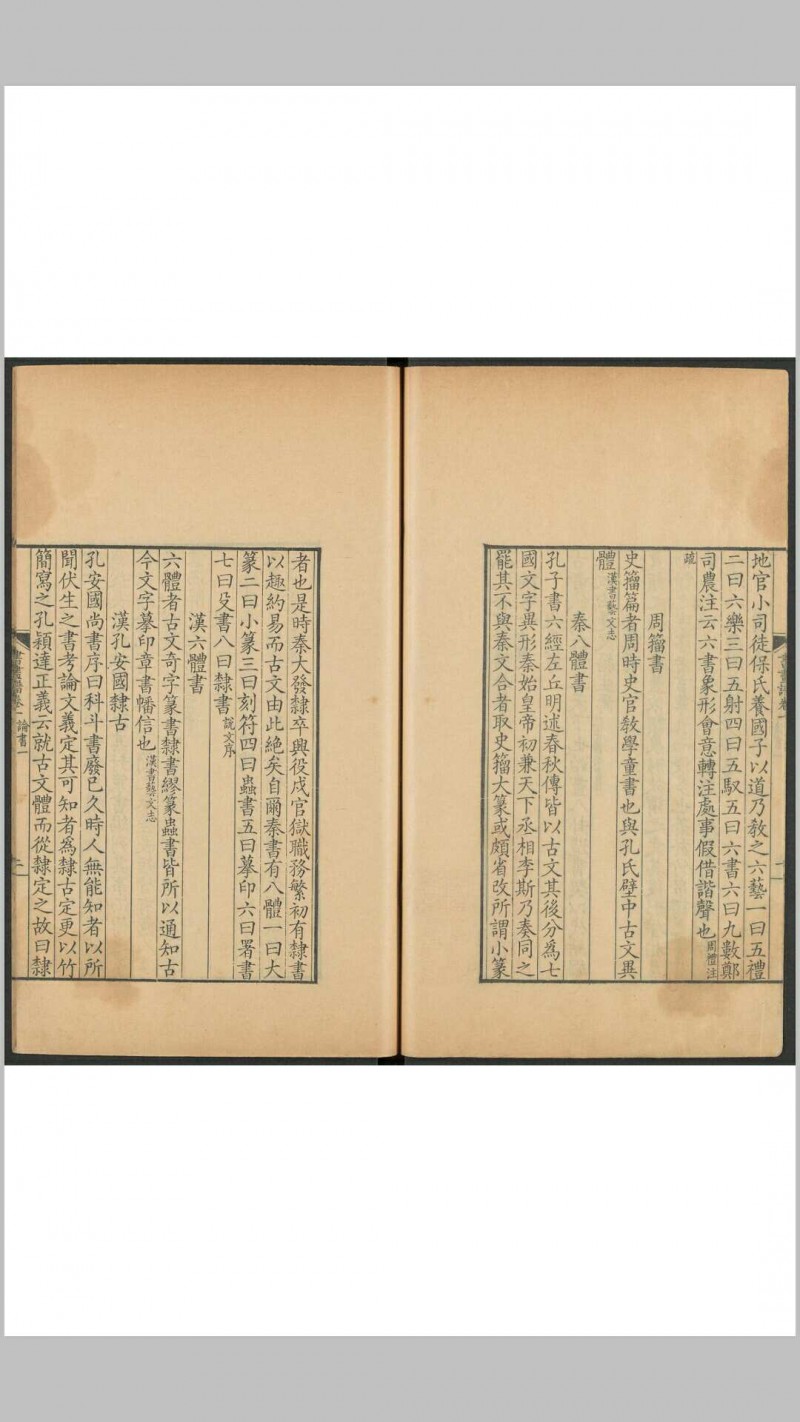 地官小司徒保氏養國子以道乃教之六藝一曰五禮
二曰六樂三曰五射四曰五馭五曰六書六曰九數鄭
司農注云六書象形會意轉注處事假借諧聲也周禮注
疏
周籀書
史籀篇者周時史官教學童書也與孔氏壁中古文異
體漢書藝文志
秦八體書
孔子書六經左丘明述春秋傳皆以古文其後分為七
國文字異形秦始皇帝初兼天下丞相李斯乃奏同之
罷其不與秦文合者取史籀大篆或頗省改所謂小篆
者也是時秦大發隸卒興役戍官獄職務繁初有隸書
以趣約易而古文由此絕矣自爾秦書有八體一曰大
篆二曰小篆三曰刻符四曰蟲書五曰摹印六曰署書
七曰殳書八曰隸書說文序
漢六體書
六體者古文奇字篆書隸書繆篆蟲書皆所以通知古
今文字摹印章書幡信也漢書藝文志
漢孔安國隸古
孔安國尚書序曰科斗書廢已久時人無能知者以所
聞伏生之書考論文義定其可知者為隸古定更以竹
簡寫之孔穎達正義云就古文體而從隸定之故曰隸
書畫譜卷一 論書一